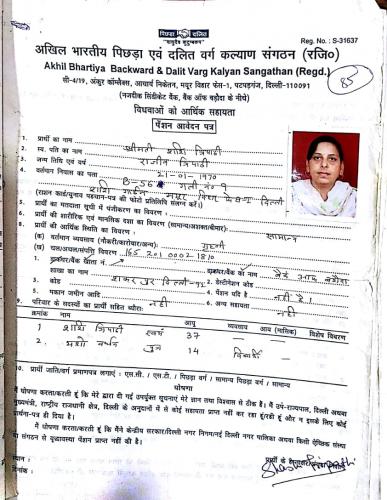 पिछड़ा दलित
Reg. No. : S-31637
अखिल भारतीय पिछड़ा एवं दलित वर्ग कल्याण संगठन (रजि०)
Akhil Bhartiya Backward & Dalit Varg Kalyan Sangathan (Regd.)
सी-4/19, अंकुर कॉम्प्लैक्स, आचार्य निकेतन, मयूर विहार फेस-1, पटपड़गंज, दिल्ली-110091
85
(नजदीक सिंडीकेट बैंक, बैंक ऑफ बड़ौदा के नीचे)
विधवाओं को आर्थिक सहायता
पेंशन आवेदन पत्र
1. प्रार्थी का नाम श्रीमती शशि त्रिपाठी
2. स्व. पति का नाम राजीव त्रिपाठी
3. जन्म तिथि एवं वर्ष 21-01-1970
4. वर्तमान निवास का पता B-56 गली नं० 9
शशि गार्डन मयूर विहार फेस दिल्ली
(राशन कार्ड/चुनाव पहचान-पत्र की फोटो प्रतिलिपि संलग्न करें।)
5. प्रार्थी का मतदाता सूची में पंजीकरण का विवरण
6. प्रार्थी की शारीरिक एवं मानसिक दशा का विवरण (सामान्य/अशक्त/बीमार) सामान्य
7. प्रार्थी की आर्थिक स्थिति का विवरण :
(क) वर्तमान व्यवसाय (नौकरी/कारोबार/अन्य) गृहणी
(ख) चल/अचल/संपत्ति विवरण 165 201 0002 1810
1. डाकघर/बैंक खाता नं. 2. डाकघर/बैंक का नाम बैंक आफ बड़ौदा
शाखा का नाम शकर पुर दिल्ली-92 2. डेस्टीनेशन कोड
3. कोड 4. पेंशन यदि है नहीं है।
5. मकान जमीन आदि 6. अन्य नहीं
9. परिवार के सदस्यों का प्रार्थी सहित ब्यौरा: नहीं
क्रमांक नाम आयु व्यवसाय आय (मासिक) विशेष विवरण
1 शशि त्रिपाठी स्वयं 37
2. वर्धन पुत्र 14 विद्यार्थी
10. प्रार्थी जाति/वर्ग प्रमाणपत्र लगाएं : एस.सी. / एस.टी. / पिछड़ा वर्ग / सामान्य पिछड़ा वर्ग / सामान्य
घोषणा
मैं घोषणा करता/करती हूं कि मेरे द्वारा दी गई उपर्युक्त सूचनाएं मेरे ज्ञान तथा विश्वास से ठीक है। मैं उप-राज्यपाल, दिल्ली अथवा
मुख्यमंत्री, राष्ट्रीय राजधानी क्षेत्र, दिल्ली के अनुदानों में से कोई सहायता प्राप्त नहीं कर रहा हूं/रही हूं और न इसके लिए कोई
प्रार्थना-पत्र ही दिया है।
मैं घोषणा करता/करती हूं कि मैंने केन्द्रीय सरकार/दिल्ली नगर निगम/नई दिल्ली नगर पालिका अथवा किसी ऐच्छिक संस्था
या संगठन से वृद्धावस्था पेंशन प्राप्त नहीं की है।
स्थान :
दिनांक :
प्रार्थी के हस्ताक्षर